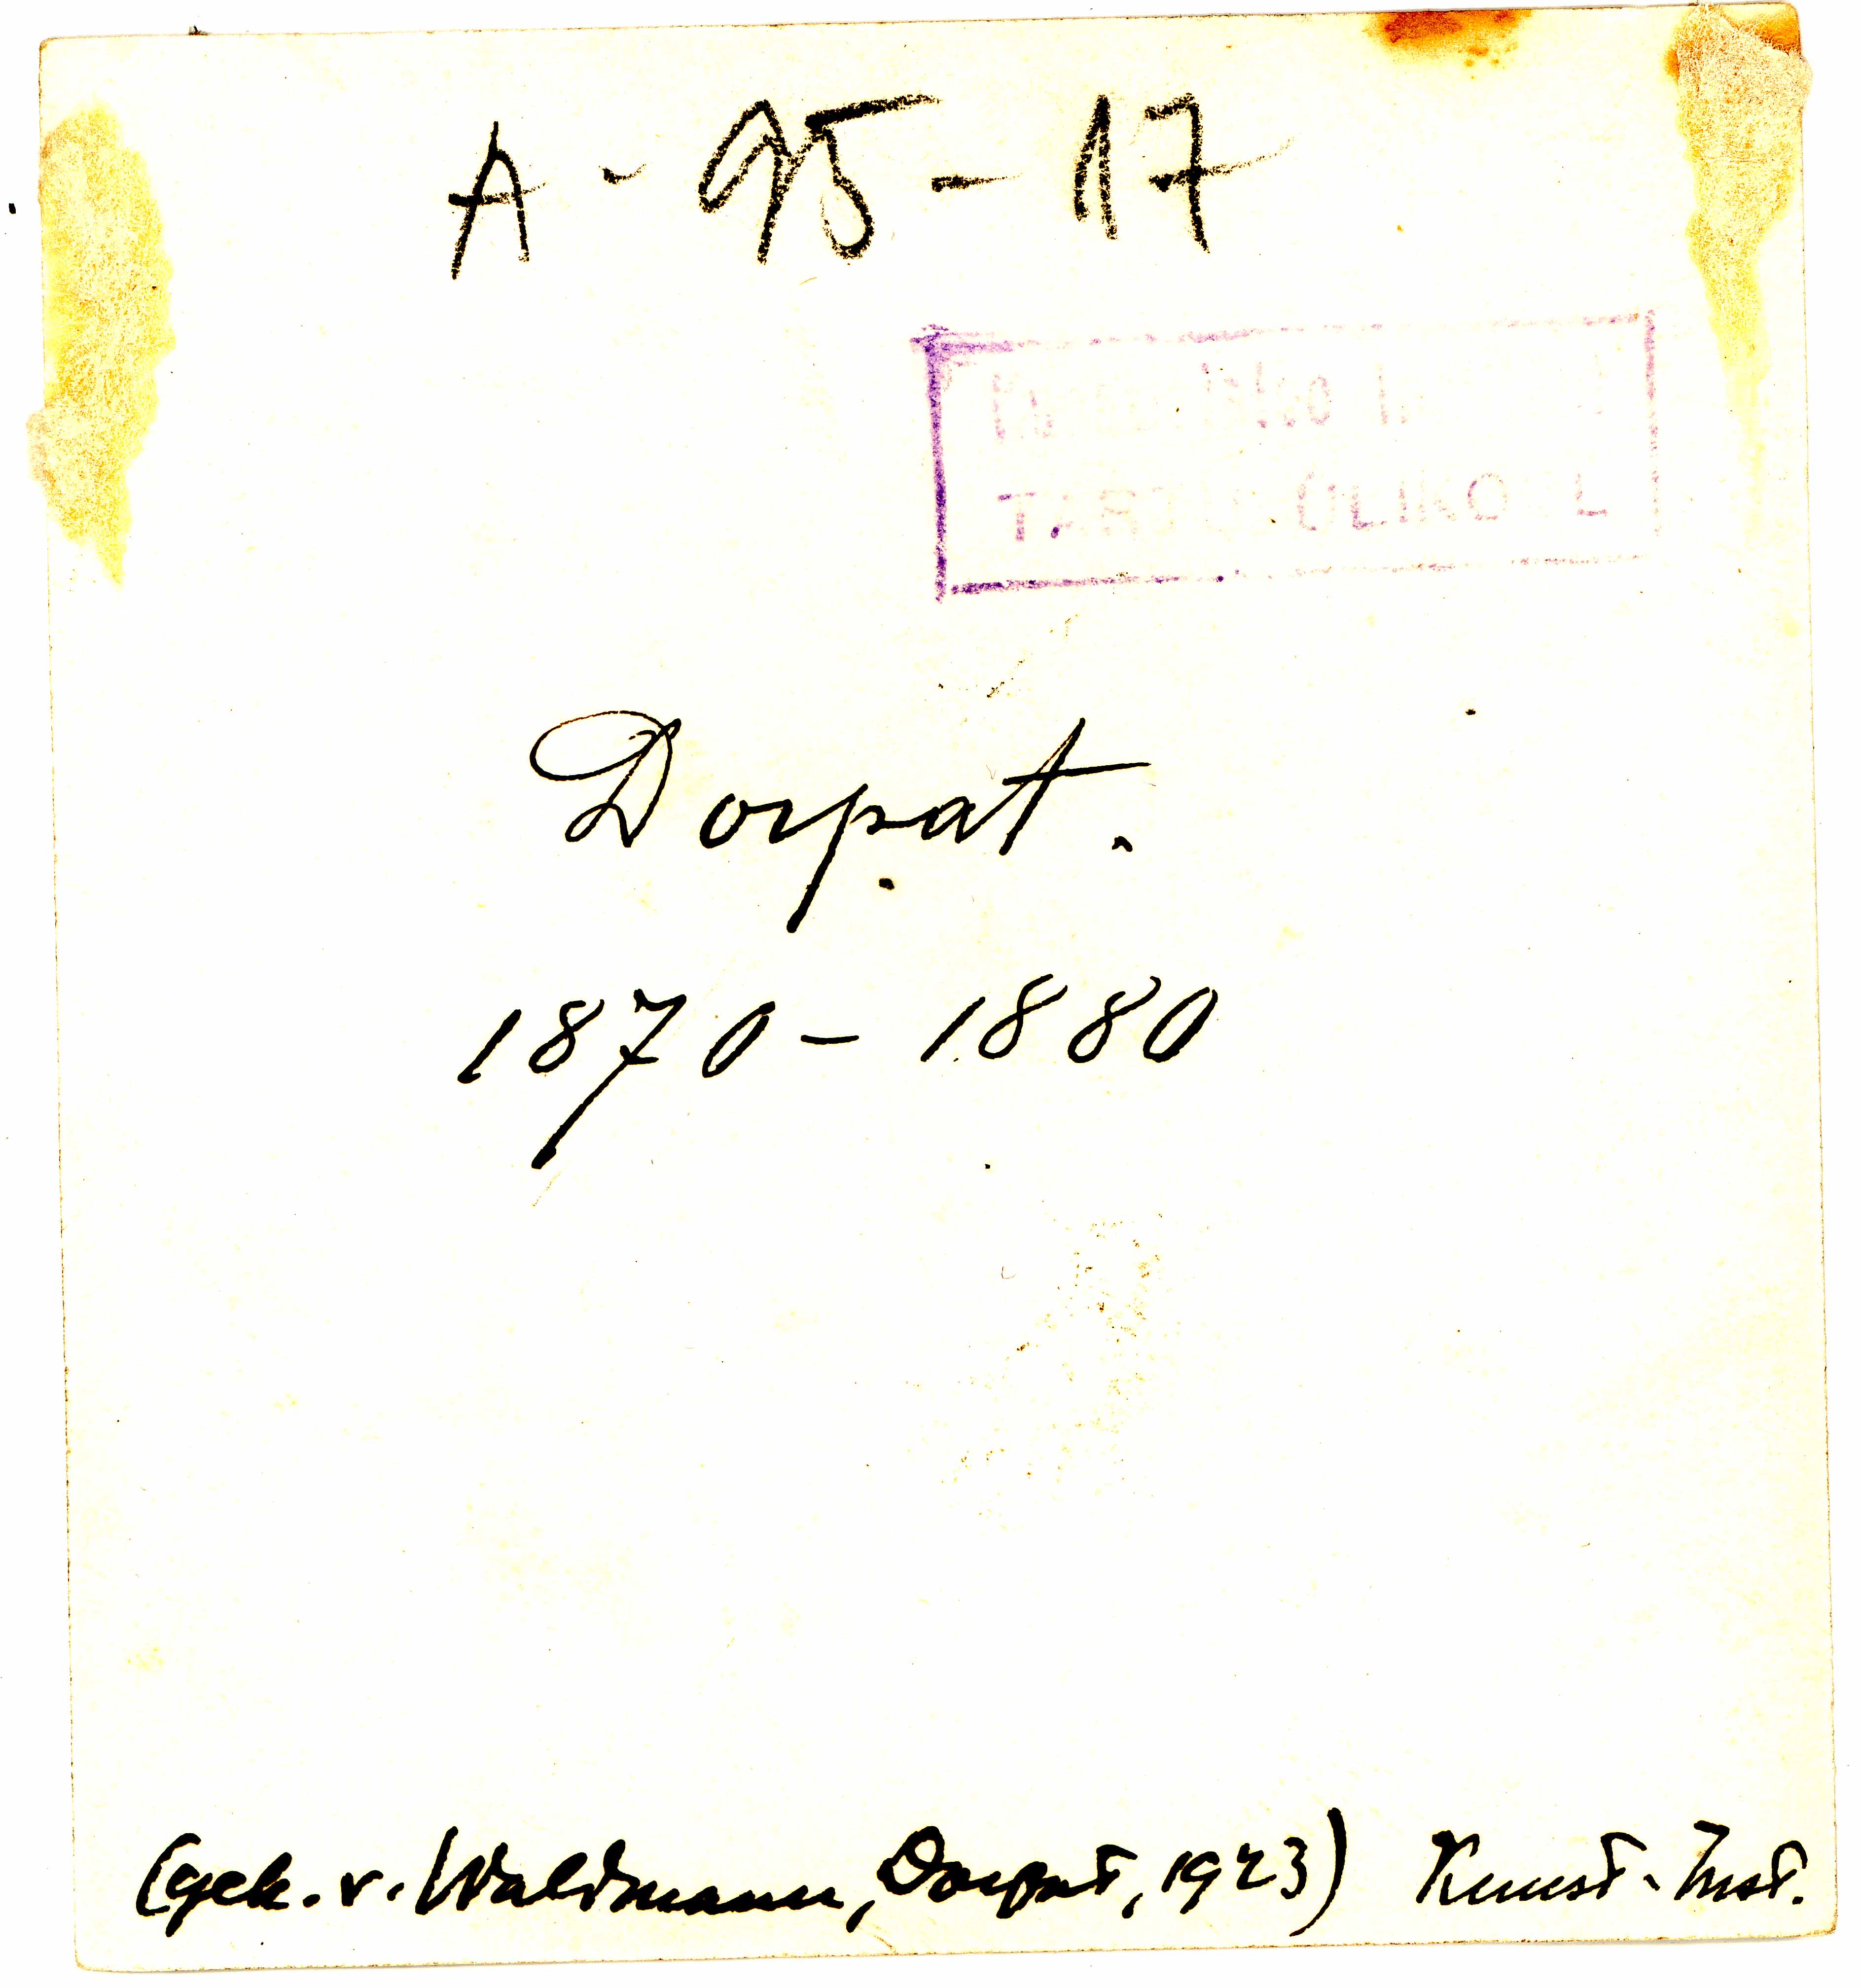 A-95-17
Dorpat.
1870-1880
(gek. v. Waldmann, Dorpat, 1923) Kunst-Inst.